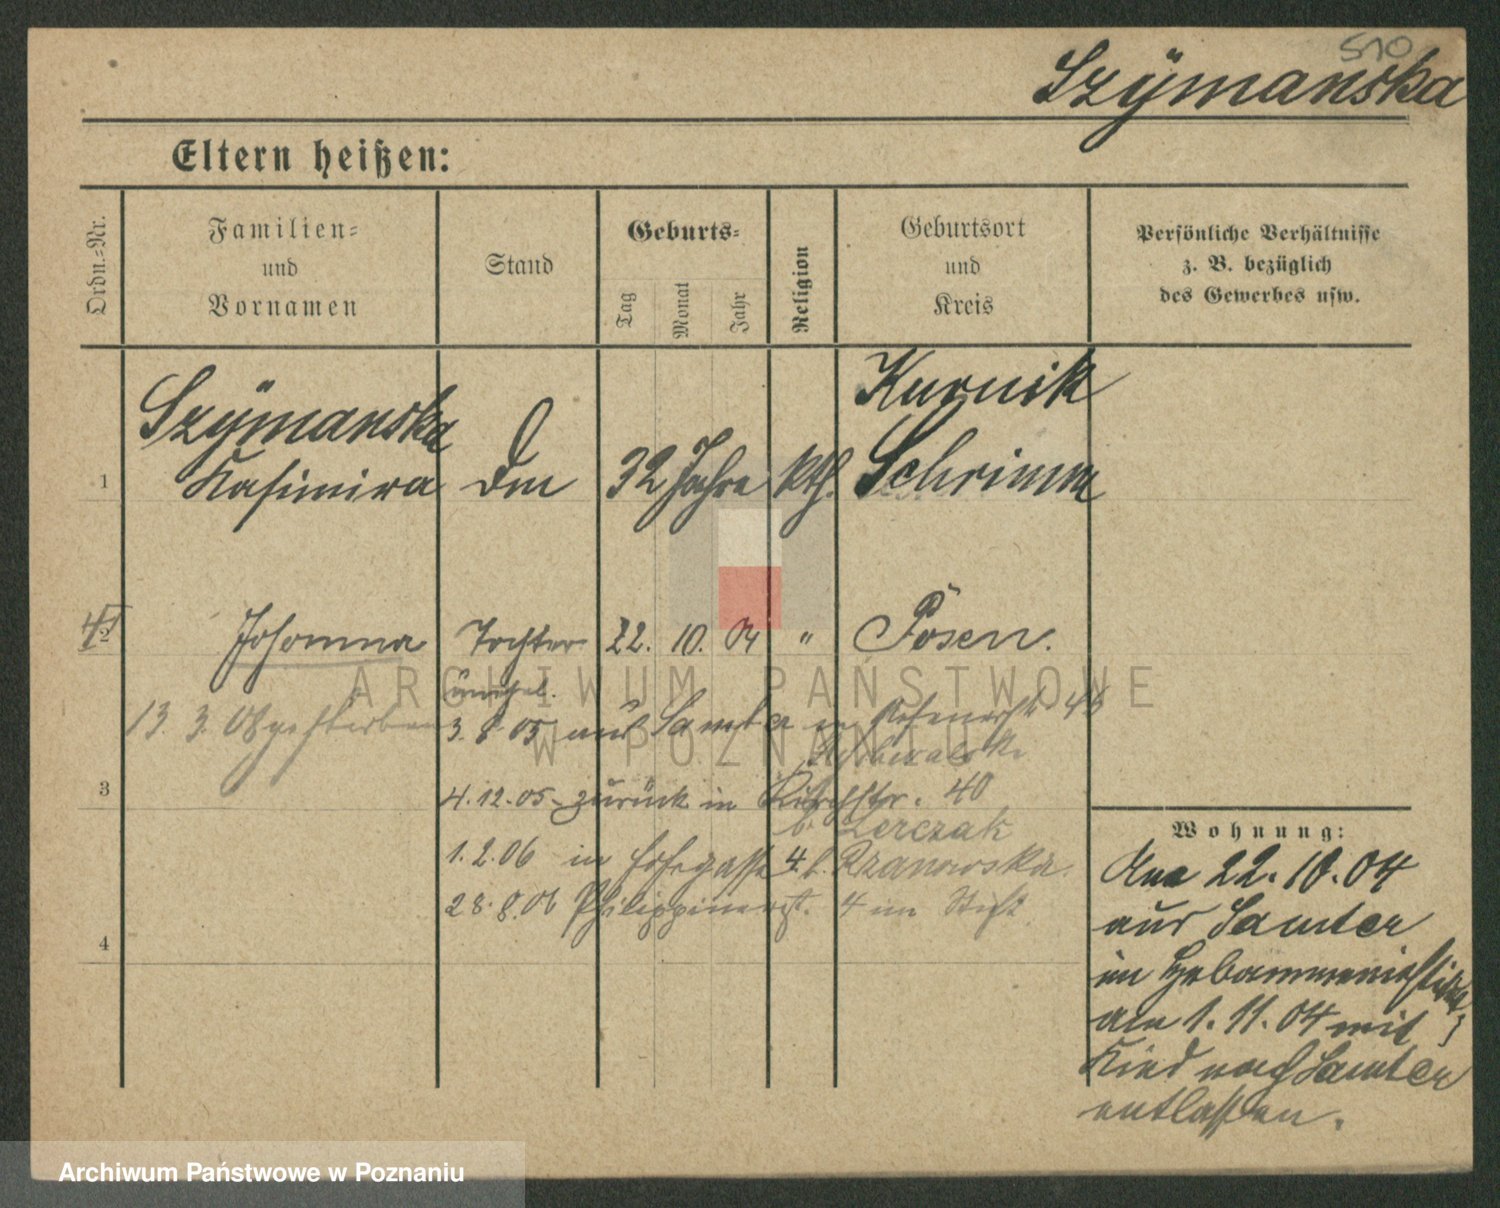 510
Szÿmanska
Eltern heißen:
Ordn.-Nr.
Familien-
und
Vornamen
Stand
Geburts-
Tag
Monat
Jahr
Religion
Geburtsort
und
Kreis
Persönliche Verhältnisse
z. B. bezüglich
des Gewerbes usw.
Kurnik
Szÿmanska
1 Kasimira 32 Jahre kth. Schrimm
2 Johanna Tochter 22. 10. 04 " Posen.
unehel.
13. 3. 08 gestorben 3. 8. 05 aus Samter in 
3
4.12.05 zurück in 40
b. Lerczak
1.2.06 in 4 b. Rzanowska
28.8.06 4 im Stift
4
Wohnung:
22.10.04
aus Samter
im
am 1.11.04 mit
Kind nach Samter
entlassen.
ARCHIWUM PAŃSTWOWE
W POZNANIU
Archiwum Państwowe w Poznaniu